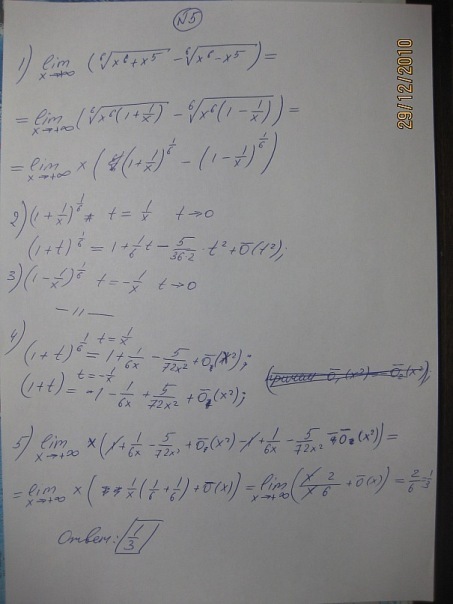 №5
1) lim x→+∞ (⁶√(x⁶+x⁵) - ⁶√(x⁶-x⁵)) =
= lim x→+∞ (⁶√(x⁶(1+1/x)) - ⁶√(x⁶(1-1/x))) =
= lim x→+∞ x ((1+1/x)^(1/6) - (1-1/x)^(1/6))
2) (1+1/x)^(1/6) t = 1/x t→0
(1+t)^(1/6) = 1+1/6 t - 5/(36·2) · t² + ō(t²);
3) (1-1/x)^(1/6) t = -1/x t→0
—//—
4) t = 1/x
(1+t)^(1/6) = 1 + 1/(6x) - 5/(72x²) + ō₁(x²);
t = -1/x
(1+t) = -1 - 1/(6x) + 5/(72x²) + ō₂(x²);
5) lim x→+∞ x (1 + 1/(6x) - 5/(72x²) + ō₁(x²) - 1 + 1/(6x) - 5/(72x²) ō₂(x²)) =
= lim x→+∞ x (1/x (1/6 + 1/6) + ō(x)) = lim x→+∞ (x/x 2/6 + ō(x)) = 2/6 = 1/3
Ответ: 1/3
29/12/2010